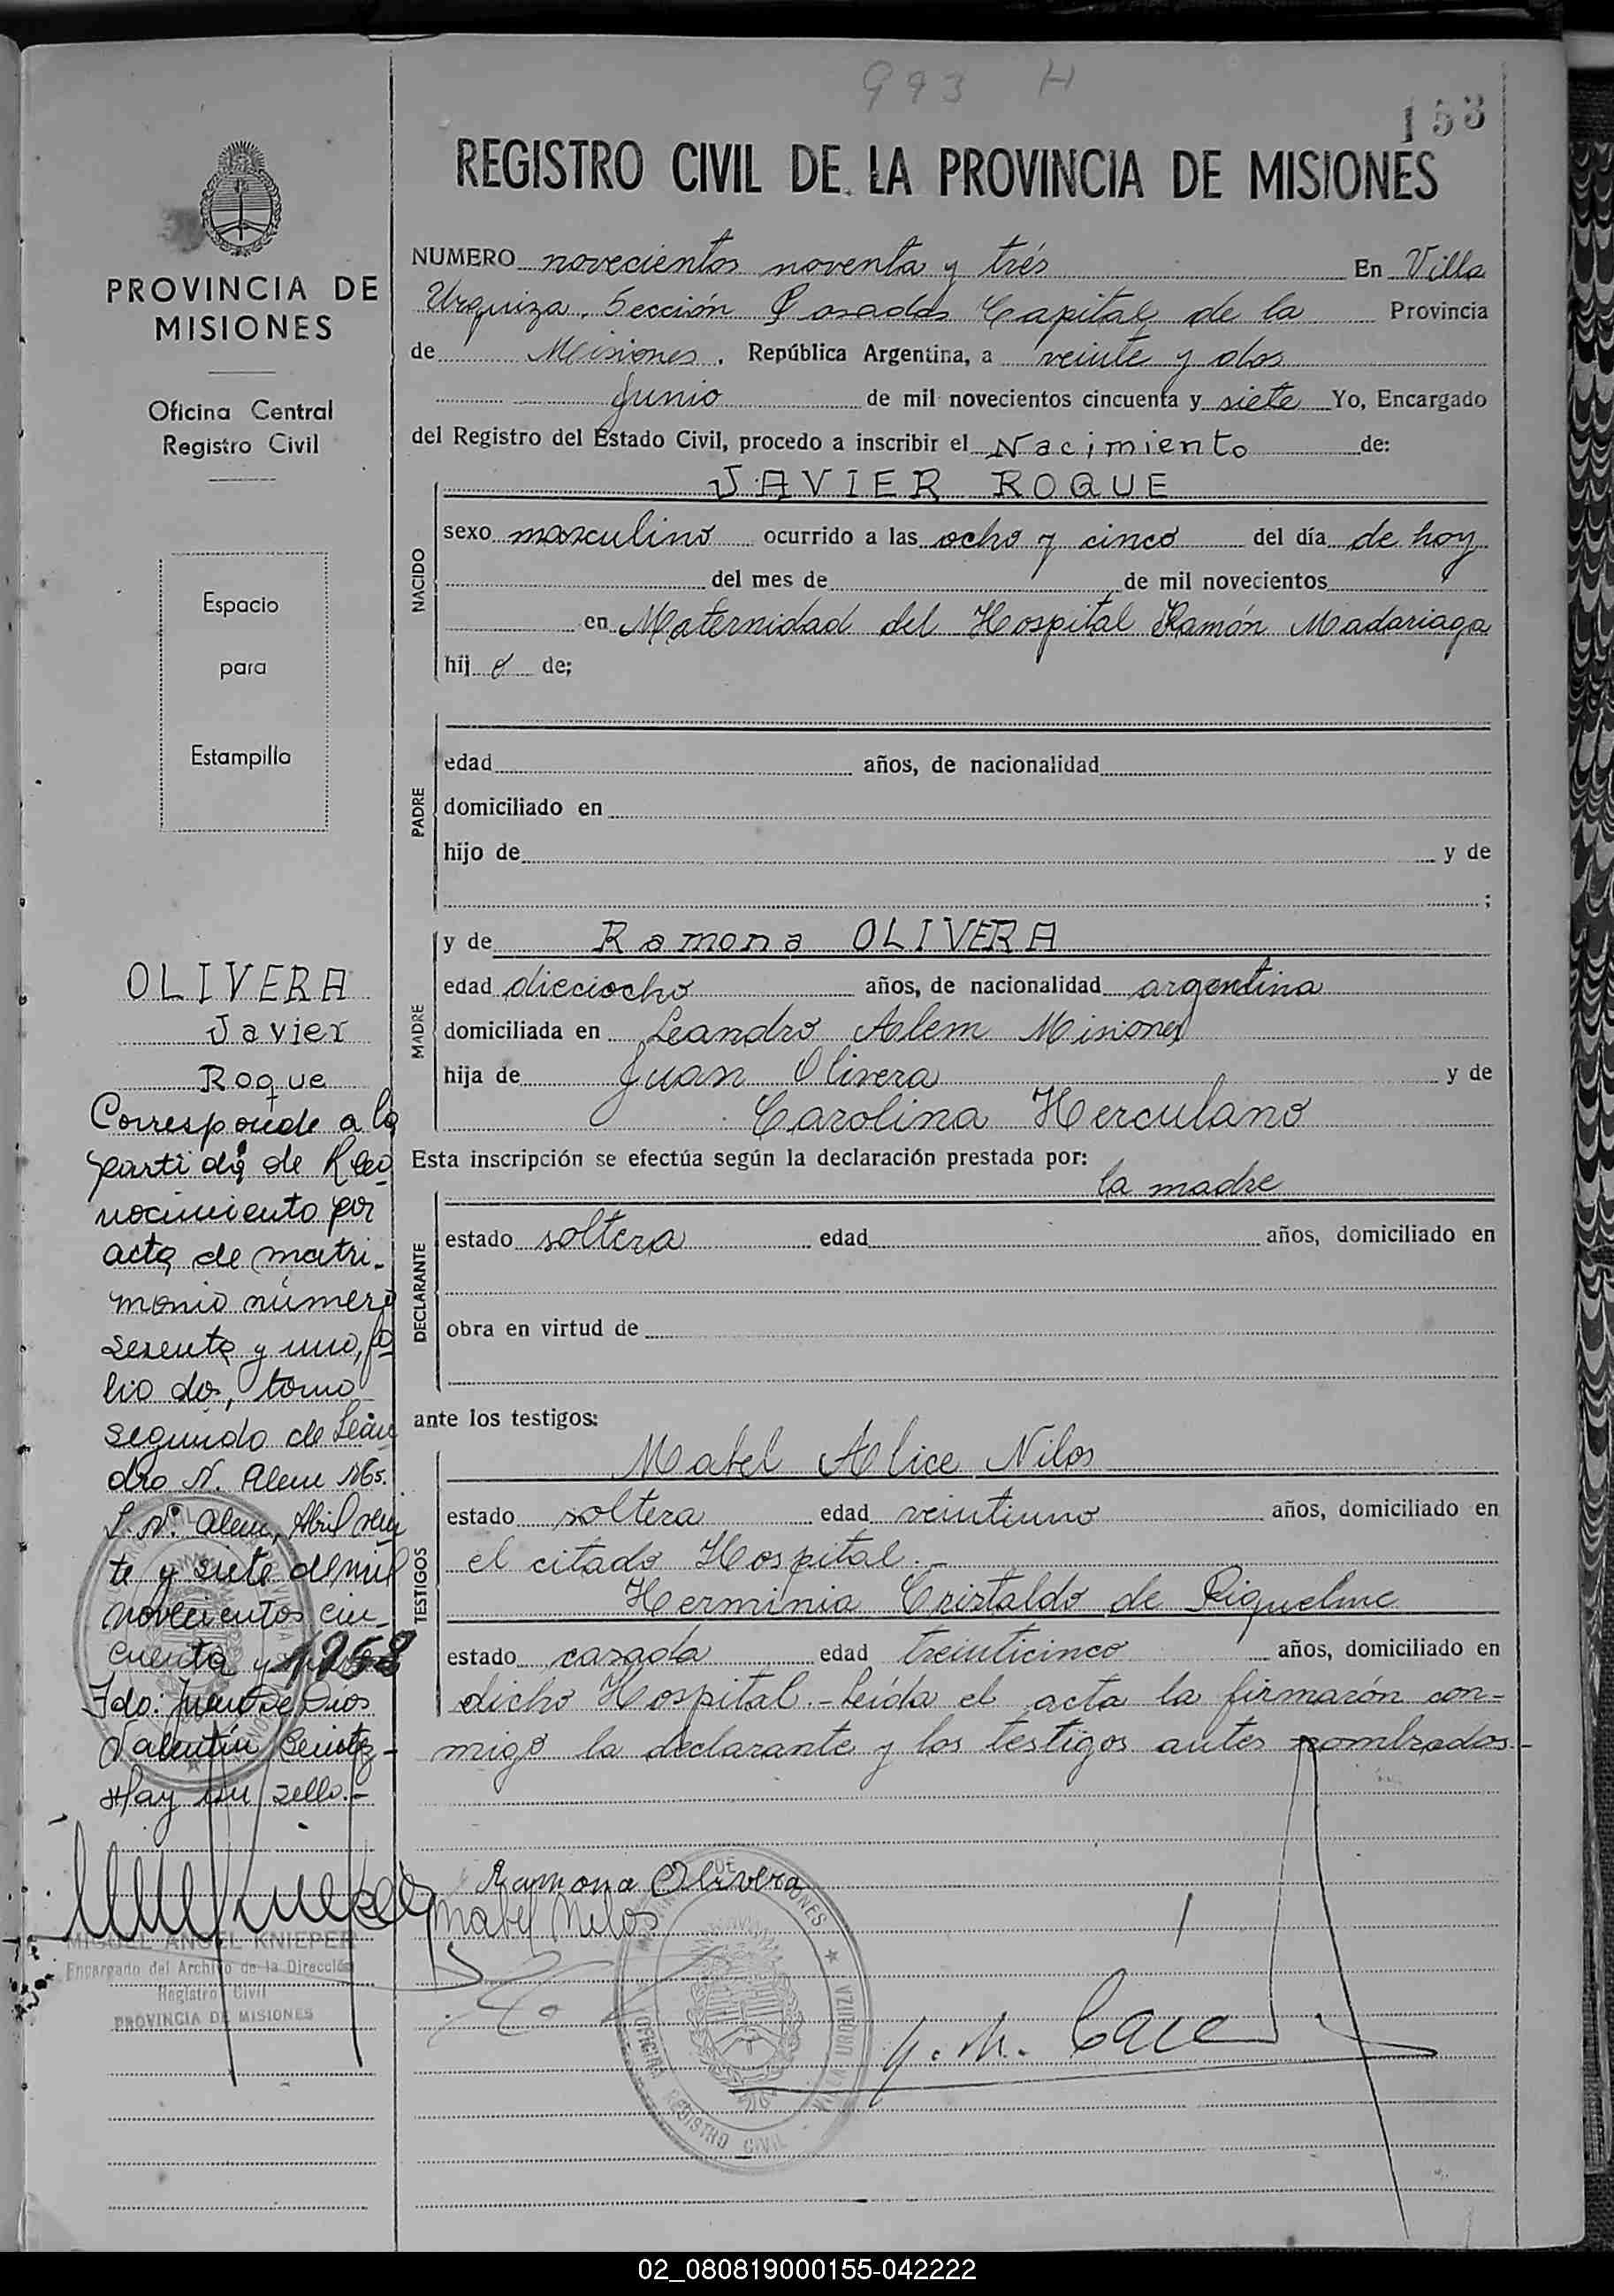 993 H
153
REGISTRO CIVIL DE LA PROVINCIA DE MISIONES
PROVINCIA DE
MISIONES
Oficina Central
Registro Civil
Espacio
para
Estampilla
OLIVERA
Javier
Roque
Corresponde a la
partida de Reco
nocimiento por
acta de matri-
monio número
sesenta y uno, fo
lio dos, tomo
segundo de Lean
dro N. Alem Ms.
L. N. Alem, Abril vein
te y siete de mil
novecientos cin-
cuenta y
1958
Fdo: Juan de Dios
Valentín Benitez-
Hay un sello.-
MIGUEL ANGEL KNIEPER
Encargado del Archivo de la Dirección
Registro Civil
PROVINCIA DE MISIONES
NUMERO novecientos noventa y trés En Villa
Urquiza, Sección Posadas Capital de la Provincia
de Misiones. República Argentina, a veinte y dos
Junio de mil novecientos cincuenta y siete Yo, Encargado
del Registro del Estado Civil, procedo a inscribir el Nacimiento de:
NACIDO
JAVIER ROQUE
sexo masculino ocurrido a las ocho y cinco del día de hoy
del mes de de mil novecientos
en Maternidad del Hospital Ramón Madariaga
hij o de;
PADRE
edad años, de nacionalidad
domiciliado en
hijo de y de
;
MADRE
y de Ramona OLIVERA
edad dieciocho años, de nacionalidad argentina
domiciliada en Leandro Alem Misiones
hija de Juan Olivera y de
Carolina Herculano
Esta inscripción se efectúa según la declaración prestada por:
DECLARANTE
la madre
estado soltera edad años, domiciliado en
obra en virtud de
ante los testigos:
TESTIGOS
Mabel Alice Nilos
estado soltera edad veintiuno años, domiciliado en
el citado Hospital.-
Herminia Cristaldo de Riquelme
estado casada edad treinticinco años, domiciliado en
dicho Hospital.- Leída el acta la firmarón con-
migo la declarante y los testigos antes nombrados.-
Ramona Olivera
Mabel Nilos
OFICINA REGISTRO CIVIL VILLA URQUIZA
02_080819000155-042222